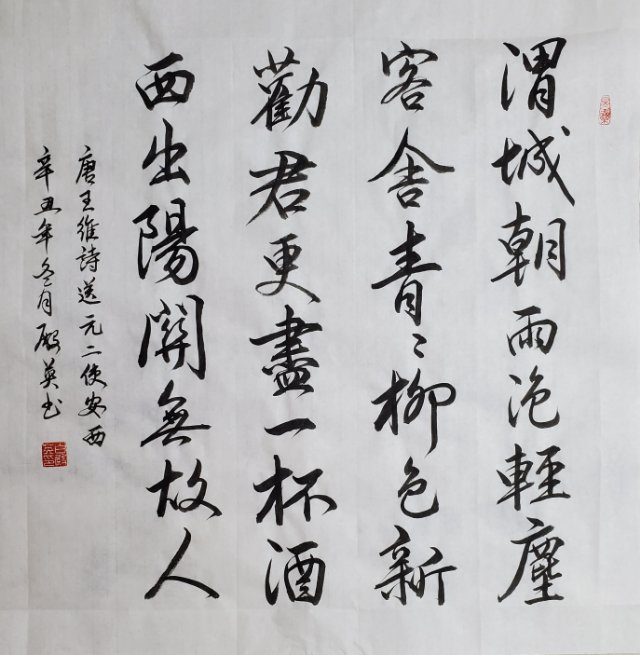 渭城朝雨浥輕塵
客舍青〻柳色新
勸君更盡一杯酒
西出陽關無故人
唐王維詩送元二使安西
辛丑年冬月殷英书